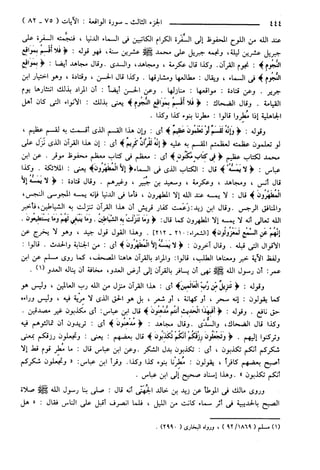 ٤٤٤ الجزء الثالث ـ سورة الواقعة : الآيات (٧٥ ـ ٨٢)
عند الله من اللوح المحفوظ إلى السفرة الكرام الكاتبين في السماء الدنيا ، فنجمته السفرة على
جبريل عشرين ليلة ، ونجمه جبريل على محمد ﷺ عشرين سنة، فهو قوله : ﴿ فَلَا أُقْسِمُ بِمَوَاقِعِ
النُّجُومِ ﴾ نجوم القرآن. وكذا قال عكرمة ، ومجاهد، والسدي. وقال مجاهد أيضا : ﴿ بِمَوَاقِعِ
النُّجُومِ ﴾ في السماء ، ويقال : مطالعها ومشارقها . وكذا قال الحسن ، وقتادة ، وهو اختيار ابن
جرير . وعن قتادة : مواقعها : منازلها . وعن الحسن أيضاً : أن المراد بذلك انتثارها يوم
القيامة . وقال الضحاك : ﴿ فَلَا أُقْسِمُ بِمَوَاقِعِ النُّجُومِ ﴾ يعني بذلك : الأنواء التي كان أهل
الجاهلية إذا مُطِروا قالوا : مطرنا بنوء كذا وكذا .
وقوله : ﴿ وَإِنَّهُ لَقَسَمٌ لَّوْ تَعْلَمُونَ عَظِيمٌ ﴾ أي : وإن هذا القسم الذي أقسمت به لقسم عظيم ،
لو تعلمون عظمته لعظمتم المقسم به عليه ﴿ إِنَّهُ لَقُرْآنٌ كَرِيمٌ ﴾ أي : إن هذا القرآن الذي نزل على
محمد لكتاب عظيم ﴿ فِي كِتَابٍ مَّكْنُونٍ ﴾ أي : معظم في كتاب معظم محفوظ موقر . عن ابن
عباس : ﴿ لَا يَمَسُّهُ ﴾ قال : الكتاب الذي في السماء ﴿ إِلَّا الْمُطَهَّرُونَ ﴾ يعني : الملائكة . وكذا
قال أنس ، ومجاهد ، وعكرمة ، وسعيد بن جُبَير ، وغيرهم . وقال قتادة : ﴿ لَا يَمَسُّهُ إِلَّا
الْمُطَهَّرُونَ ﴾ قال : لا يمسه عند الله إلا المطهرون ، فأما في الدنيا فإنه يمسه المجوسي النجس،
والمنافق الرجس. وقال ابن زيد: زعمت كفار قريش أن هذا القرآن تنزلت به الشياطين، فأخبر
الله تعالى أنه لا يمسه إلا المطهرون كما قال: ﴿ وَمَا تَنَزَّلَتْ بِهِ الشَّيَاطِينُ . وَمَا يَنبَغِي لَهُمْ وَمَا يَسْتَطِيعُونَ .
إِنَّهُمْ عَنِ السَّمْعِ لَمَعْزُولُونَ ﴾ [الشعراء: ٢١٠ ـ ٢١٢] . وهذا القول قول جيد ، وهو لا يخرج عن
الأقوال التي قبله . وقال آخرون : ﴿ لَا يَمَسُّهُ إِلَّا الْمُطَهَّرُونَ ﴾ أي : من الجنابة والحدث . قالوا :
ولفظ الآية خبر ومعناها الطلب، قالوا: والمراد بالقرآن هاهنا المصحف، كما روى مسلم عن ابن
عمر: أن رسول الله ﷺ نهى أن يسافر بالقرآن إلى أرض العدو، مخافة أن يناله العدو (١) .
وقوله : ﴿ تَنزِيلٌ مِّن رَّبِّ الْعَالَمِينَ ﴾ أي : هذا القرآن منزل من الله رب العالمين ، وليس هو
كما يقولون : إنه سحر ، أو كهانة ، أو شعر ، بل هو الحق الذي لا مرية فيه ، وليس وراءه
حق نافع . وقوله : ﴿ أَفَبِهَٰذَا الْحَدِيثِ أَنتُم مُّدْهِنُونَ ﴾ قال ابن عباس: أي مكذبون غير مصدقين .
وكذا قال الضحاك، والسُّدي . وقال مجاهد : ﴿ مُّدْهِنُونَ ﴾ أي : تريدون أن تمالئوهم فيه
وتركنوا إليهم . ﴿ وَتَجْعَلُونَ رِزْقَكُمْ أَنَّكُمْ تُكَذِّبُونَ ﴾ قال بعضهم : يعني : وتجعلون رزقكم بمعنى
شكركم أنكم تكذبون ، أي : تكذبون بدل الشكر .وعن ابن عباس قال : ما مُطِر قوم قط إلا
أصبح بعضهم كافراً ، يقولون : مُطِرنا بنوء كذا وكذا . وقرأ ابن عباس : « وتجعلون شكركم
أنكم تكذبون ». وهذا إسناد صحيح إلى ابن عباس .
وروى مالك في الموطأ عن زيد بن خالد الجُهَني أنه قال : صلى بنا رسول الله ﷺ صلاة
الصبح بالحديبية في أثر سماء كانت من الليل ، فلما انصرف أقبل على الناس فقال : « هل
(١) مسلم (١٨٦٩ / ٩٢) ، ورواه البخاري (٢٩٩٠) .